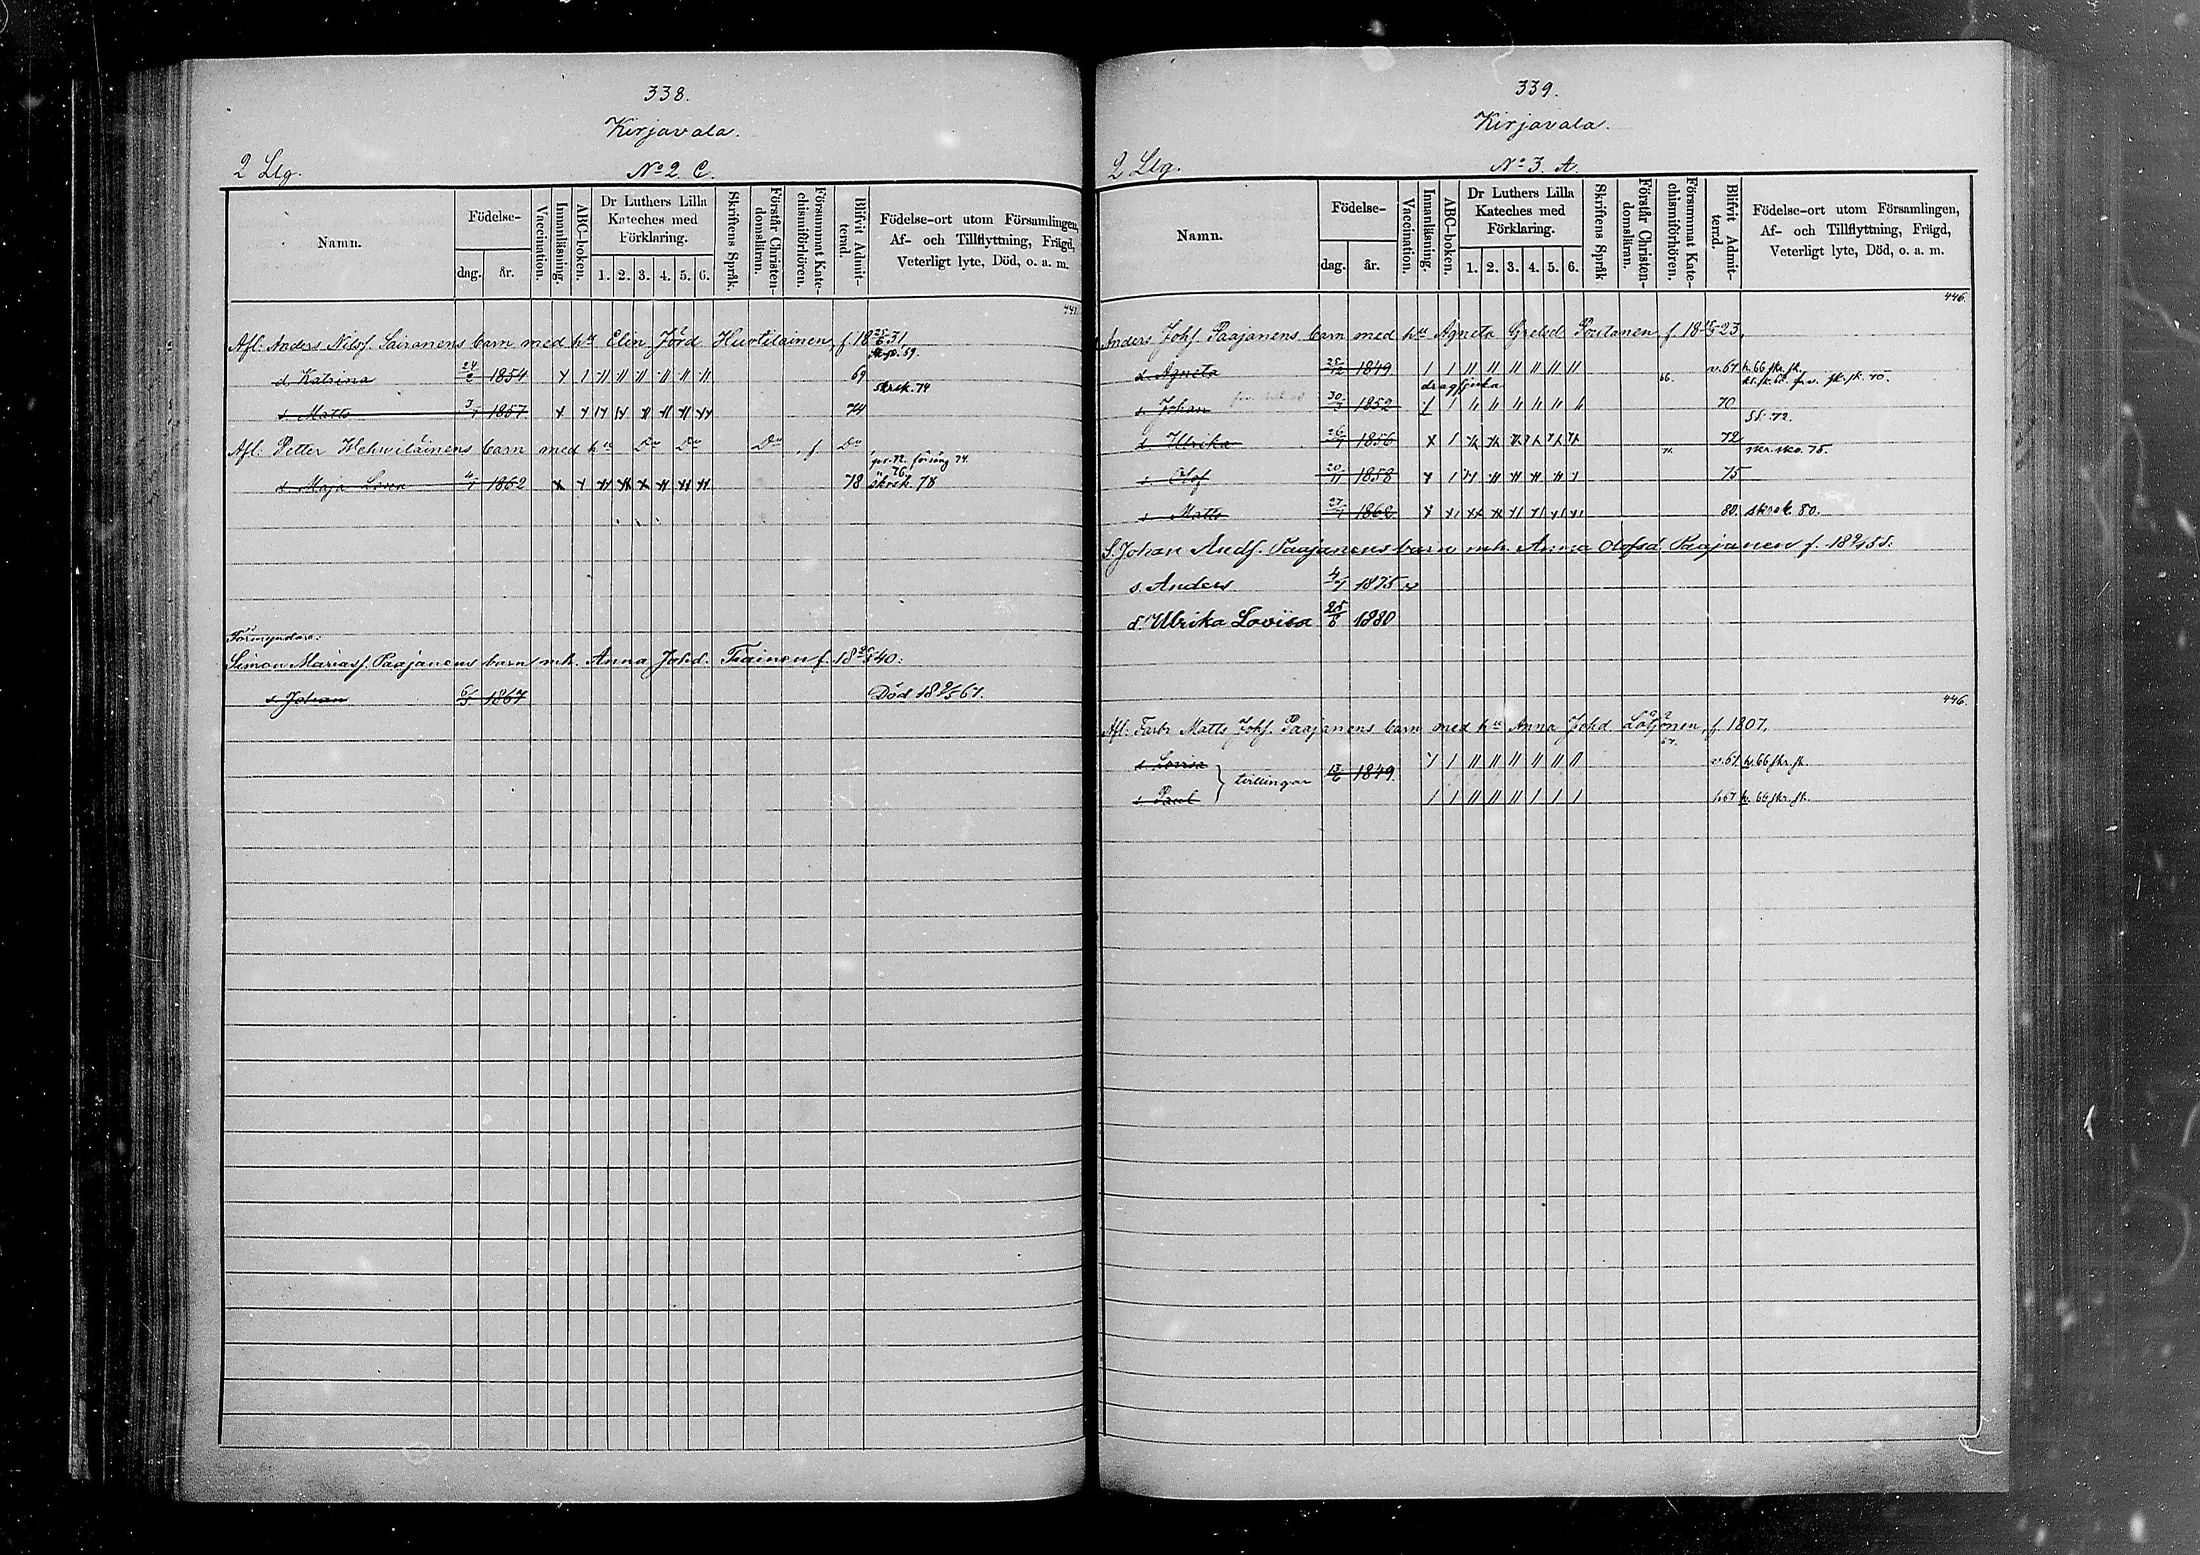 338.
Kirjavala.
2 Llg.
No 2. C.
Namn.
Födelse-
dag.
år.
Vaccination.
Innanläsning.
ABC-boken.
Dr Luthers Lilla Kateches med Förklaring.
1. 2. 3. 4. 5. 6.
Skriftens Språk.
Förstår Christendomsläran.
Försummat Katechismiförhören.
Blifvit Admitterad.
Födelse-ort utom Församlingen,
Af- och Tillflyttning, Frägd,
Veterligt lyte, Död, o. a. m.
441.
Afl. Anders Nilsf. Sairanens barn med hu Elin Jörd. Huvtilainen, f 18 25/6 31,
d. Katrina 24/2 1854 69
s. Matts 3/1 1857 74 skrsk. 74
Afl. Petter Wehwiläinens barn med hu Do Do Do, f Do
d. Maja Lovisa 4/1 1862 78 skrsk 78
Förmyndare:
Simon Mariasf. Paajanens barn mh. Anna Johd. Trainen f. 18 40:
s. Johan 6/5 1867 Död 18 9/5 67.
339.
Kirjavala.
2 Llg.
No 3. A.
Namn.
Födelse-
dag.
år.
Vaccination.
Innanläsning.
ABC-boken.
Dr Luthers Lilla Kateches med Förklaring.
1. 2. 3. 4. 5. 6.
Skriftens Språk.
Förstår Christendomsläran.
Försummat Katechismiförhören.
Blifvit Admitterad.
Födelse-ort utom Församlingen,
Af- och Tillflyttning, Frägd,
Veterligt lyte, Död, o. a. m.
446.
Anders Johf. Paajanens barn med hu Agneta Grelsd Poutanen, f 18 23,
d. Agneta 25/12 1849. v. 67 h. 66 skr. sk.
dragsjuka
s. Johan 30/3 1852 66. 70
d. Ulrika 26/1 1856 72 ss. 72.
s. Olof 20/11 1858 75 skr. sko. 75.
s. Matts 27/1 1862 80. skrsk. 80.
S. Johan Andf. Paajanens barn mh. Anna Olofsd Paajanen f. 18 9/4 55:
s. Anders 4/1 1875
d. Ulrika Lovisa 25/6 1880
446.
Afl. Farbr Matts Johf. Paajanens barn med hu Anna Johd Lötjönen, f. 1807,
s. Lovisa } tvillingar 13/6 1849. v. 67 h. 66 skr. sk.
s. Paul h 67 h. 66 skr. sk.